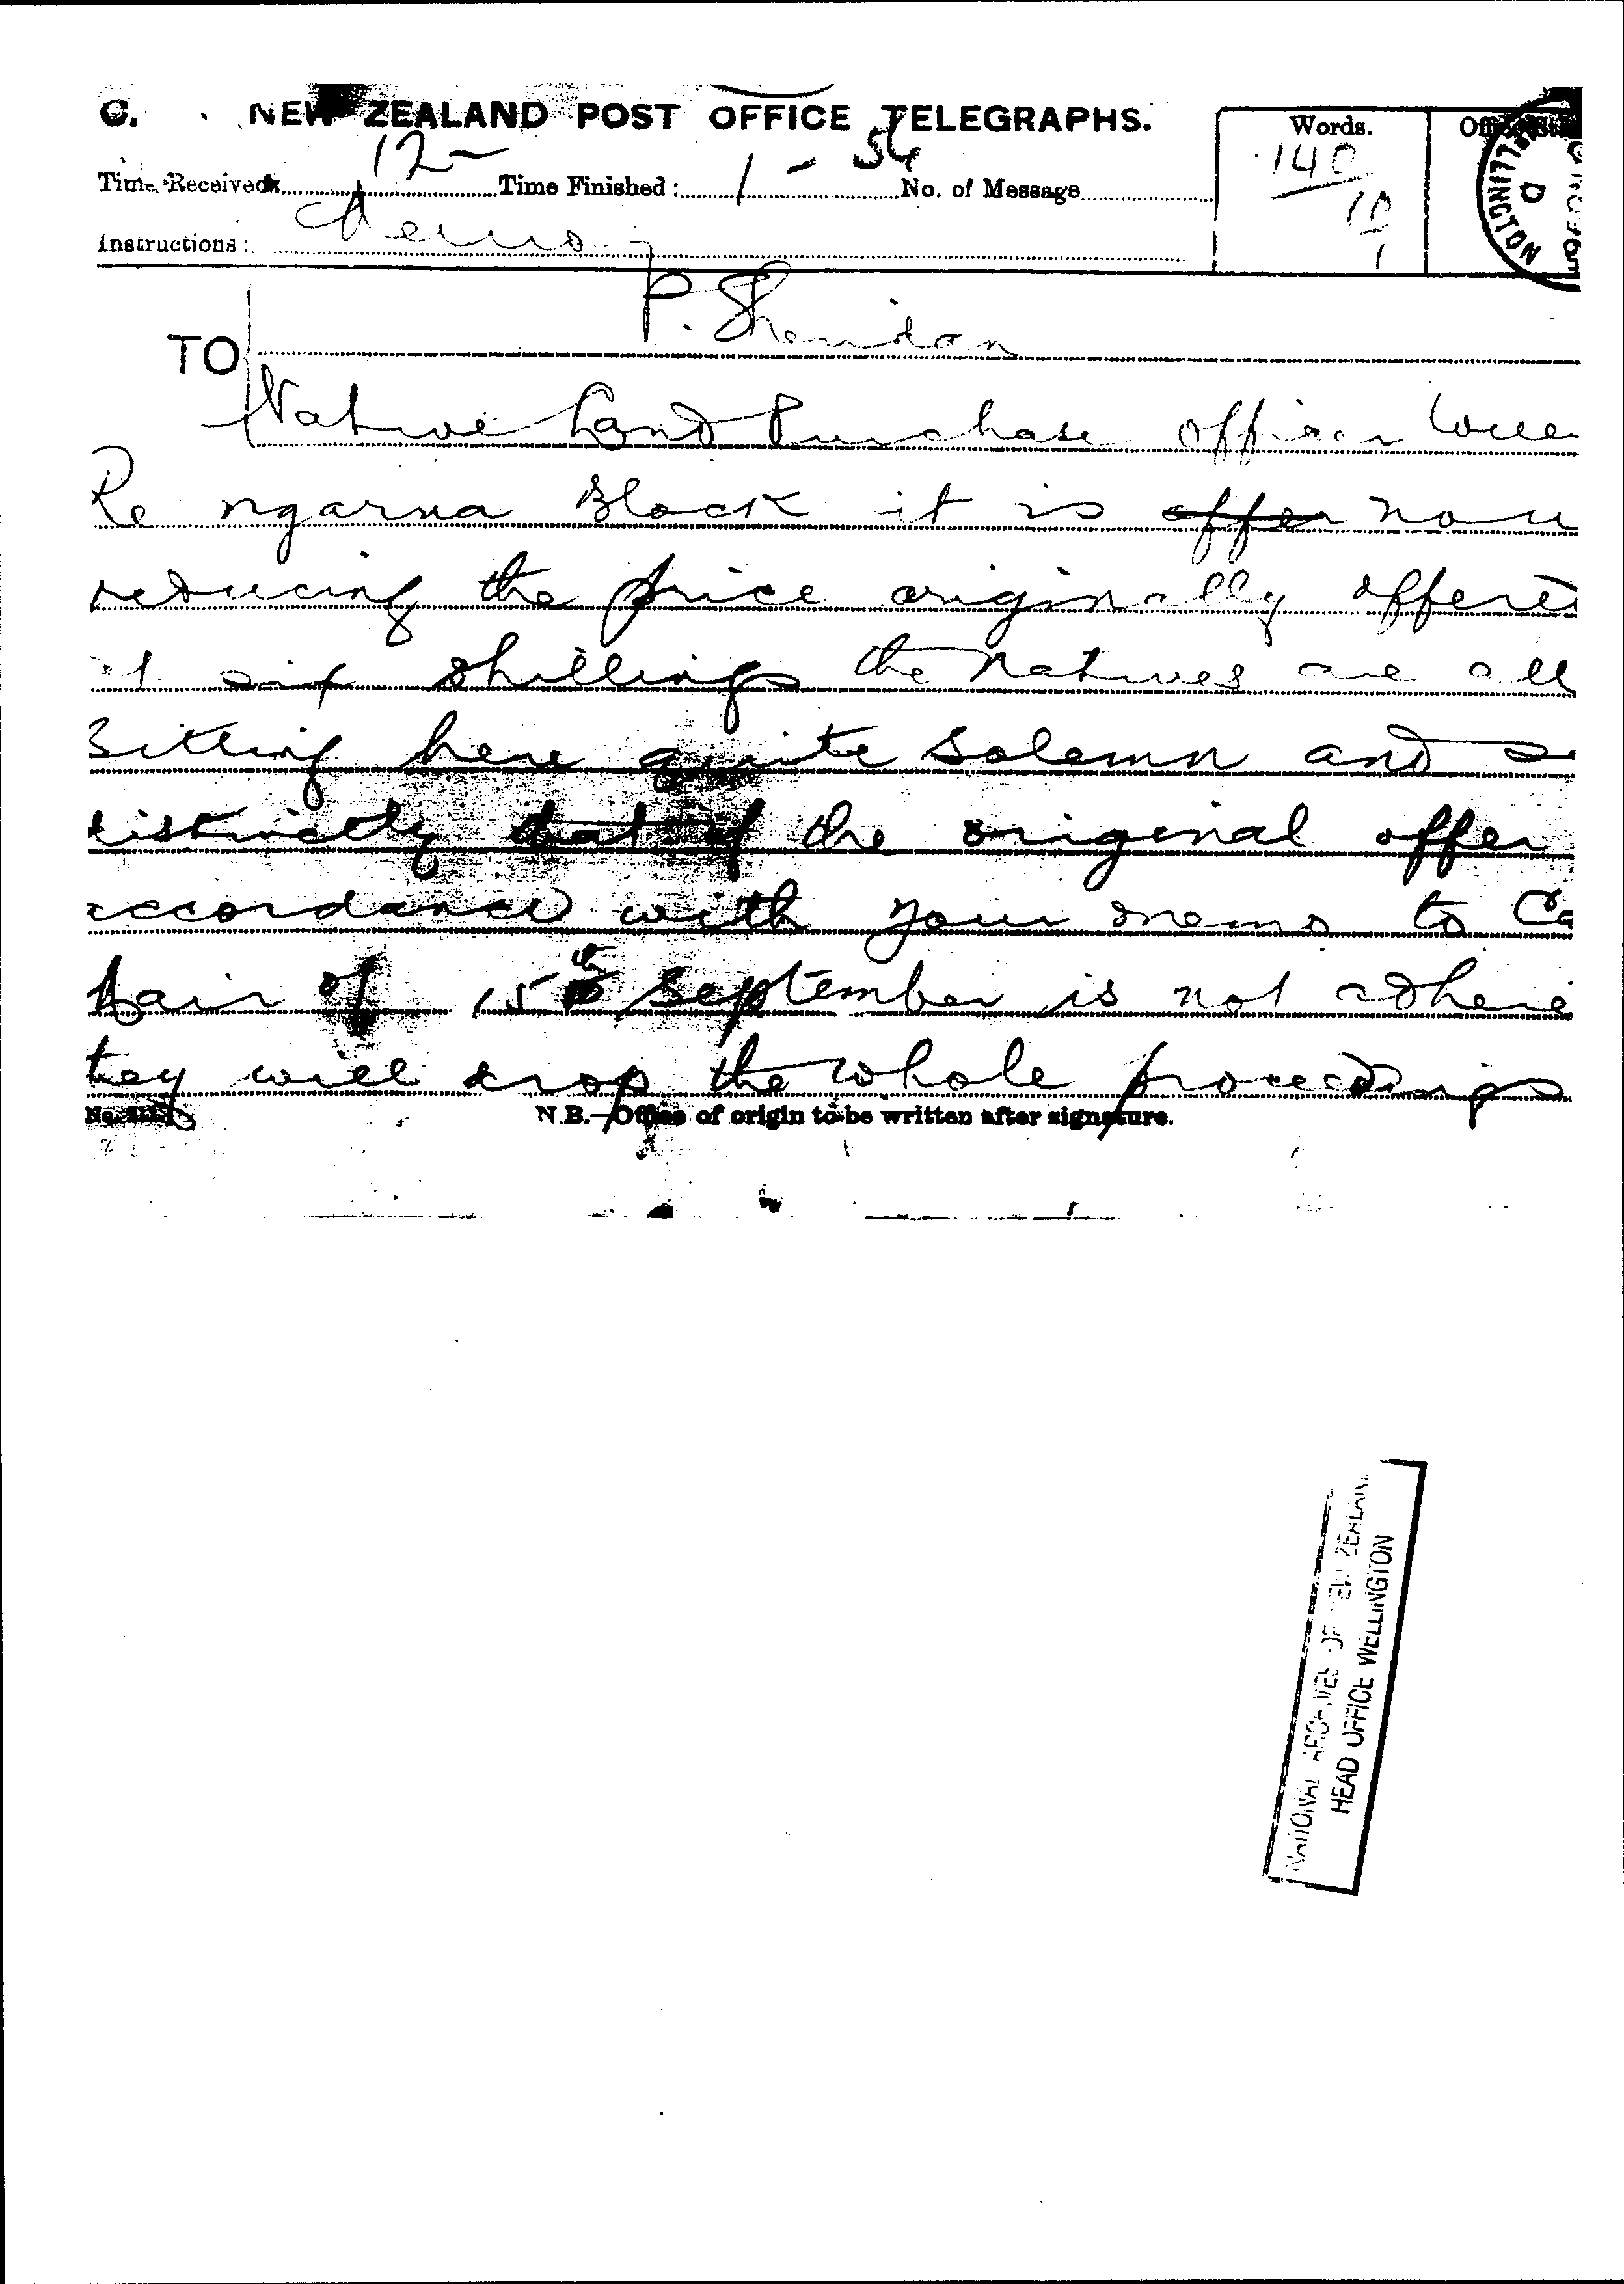 C. NEW ZEALAND POST OFFICE TELEGRAPHS.
Words.
12-
Time Received: Time Finished: 1-54 No. of Message
140
10
1
Instructions: Memo
WELLINGTON
P. Sheridan
TO
Native Land Purchase officer
Re ngarua Block it is offer now
reducing the price originally offered
at six shillings the natives are all
Sitting here quite solemn and
distinctly that if the original offer
accordance with your memo to Ca
Mair of 15th September is not adhere
they will drop the whole proceedings
N.B.—Office of origin to be written after signature.
NATIONAL ARCHIVES OF NEW ZEALAND
HEAD OFFICE WELLINGTON